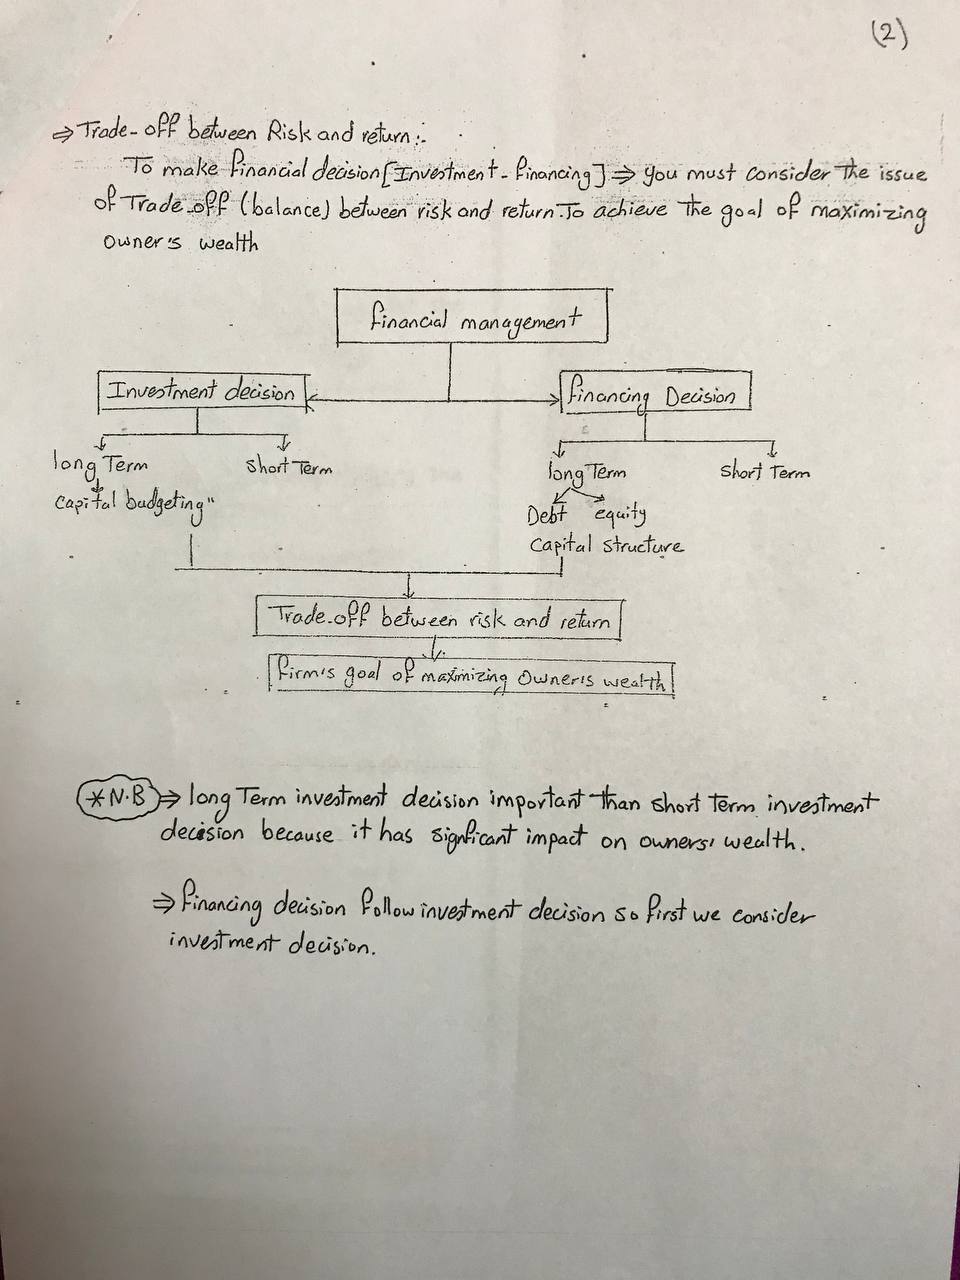 (2)
⇒ Trade-off between Risk and return:-
To make financial decision [Investment - financing] ⇒ you must consider the issue
of Trade-off (balance) between risk and return. To achieve the goal of maximizing
owner's wealth
financial management
Investment decision
financing Decision
long Term
short Term
long Term
short Term
capital budgeting"
Debt equity
capital structure
Trade-off between risk and return
firm's goal of maximizing owner's wealth
*N.B ⇒ long Term investment decision important than short term investment
decision because it has signficant impact on owners' wealth.
⇒ financing decision follow investment decision so first we consider
investment decision.